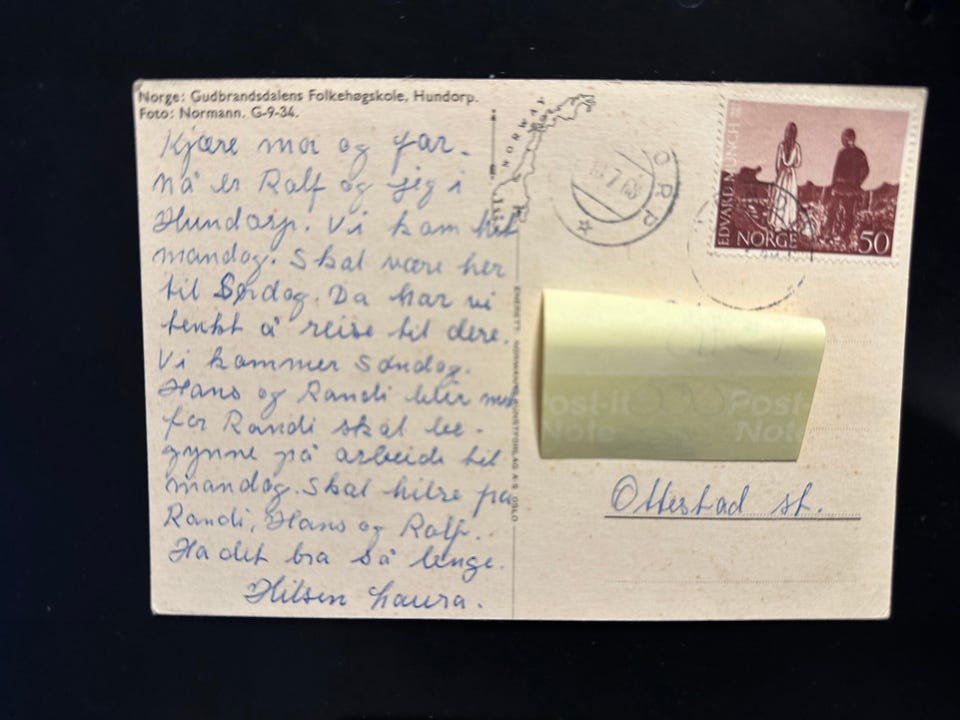 Norge: Gudbrandsdalens Folkehøgskole, Hundorp.
Foto: Normann. G-9-34.
Kjære mor og far.
Nå er Ralf og jeg i
Hundorp. Vi kom hit
mandag. Skal være her
til Lørdag. Da har vi
tenkt å reise til dere.
Vi kommer Søndag.
Hans og Randi blir med
for Randi skal be-
gynne på arbeide til
mandag. Skal hilse fra
Randi, Hans og Ralf.
Ha det bra så lenge.
Hilsen Laura.
NORWAY
ENERETT: KUNSTFORLAG A/S OSLO
ORP
7 63
EDVARD MUNCH
NORGE 50
Post-it Post-
Note Note
Ottestad st.